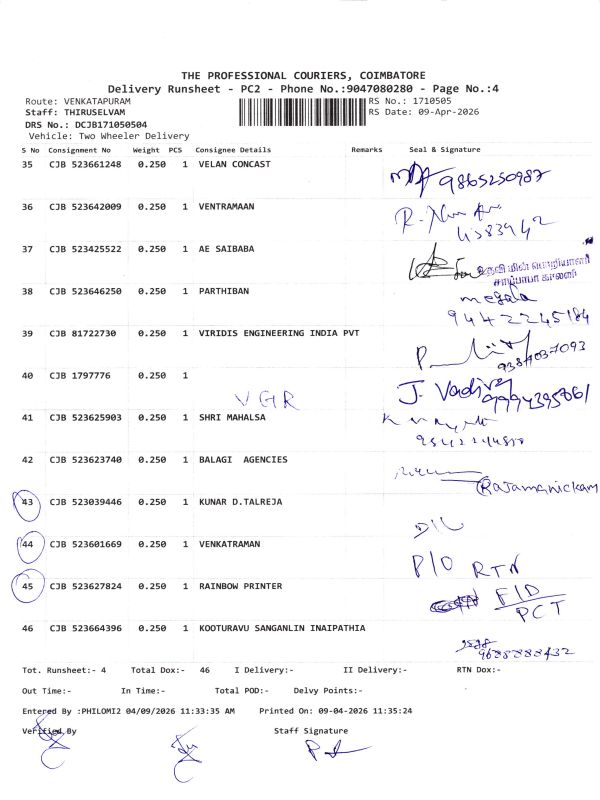 THE PROFESSIONAL COURIERS, COIMBATORE
Delivery Runsheet - PC2 - Phone No.:9047080280 - Page No.:4
Route: VENKATAPURAM
RS No.: 1710505
Staff: THIRUSELVAM
RS Date: 09-Apr-2026
DRS No.: DCJB171050504
Vehicle: Two Wheeler Delivery
S No Consignment No Weight PCS Consignee Details Remarks Seal & Signature
35 CJB 523661248 0.250 1 VELAN CONCAST
9865250987
36 CJB 523642009 0.250 1 VENTRAMAAN
37 CJB 523425522 0.250 1 AE SAIBABA
உதவி மின் பொறியாளர்
சாய்பாபா காலனி
38 CJB 523646250 0.250 1 PARTHIBAN
megala
9442245184
39 CJB 81722730 0.250 1 VIRIDIS ENGINEERING INDIA PVT
40 CJB 1797776 0.250 1
VGR
J. Vadivel
41 CJB 523625903 0.250 1 SHRI MAHALSA
42 CJB 523623740 0.250 1 BALAGI AGENCIES
Rajamanickam
43 CJB 523039446 0.250 1 KUNAR D.TALREJA
D/L
44 CJB 523601669 0.250 1 VENKATRAMAN
P/O RTN
45 CJB 523627824 0.250 1 RAINBOW PRINTER
F/D
PCT
46 CJB 523664396 0.250 1 KOOTURAVU SANGANLIN INAIPATHIA
9688888432
Tot. Runsheet:- 4 Total Dox:- 46 I Delivery:- II Delivery:- RTN Dox:-
Out Time:- In Time:- Total POD:- Delvy Points:-
Entered By :PHILOMI2 04/09/2026 11:33:35 AM Printed On: 09-04-2026 11:35:24
Verified By Staff Signature